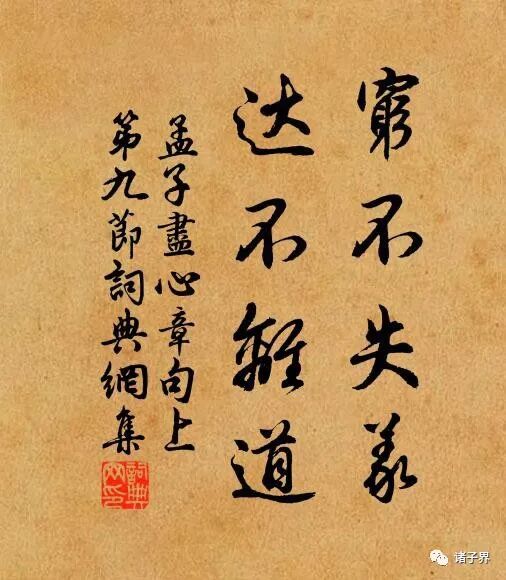 窮不失義
达不離道
孟子盡心章句上
第九節詞典網集
詞典网印
诸子界